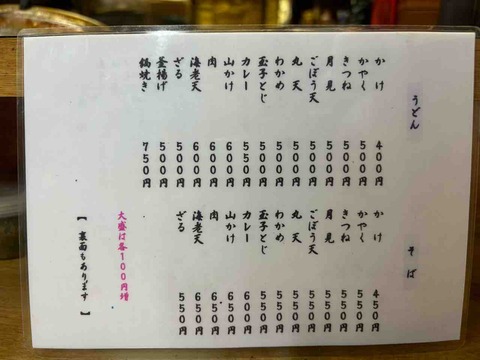 うどん
かけ 400円
かやく 500円
きつね 500円
月見 500円
ごぼう天 500円
丸天 500円
わかめ 500円
玉子とじ 500円
カレー 550円
山かけ 600円
肉 600円
海老天 600円
ざる 500円
釜揚げ 500円
鍋焼き 750円
そば
かけ 450円
かやく 550円
きつね 550円
月見 550円
ごぼう天 550円
丸天 550円
わかめ 550円
玉子とじ 550円
カレー 600円
山かけ 650円
肉 650円
海老天 650円
ざる 550円
大盛は各100円増
【裏面もあります】